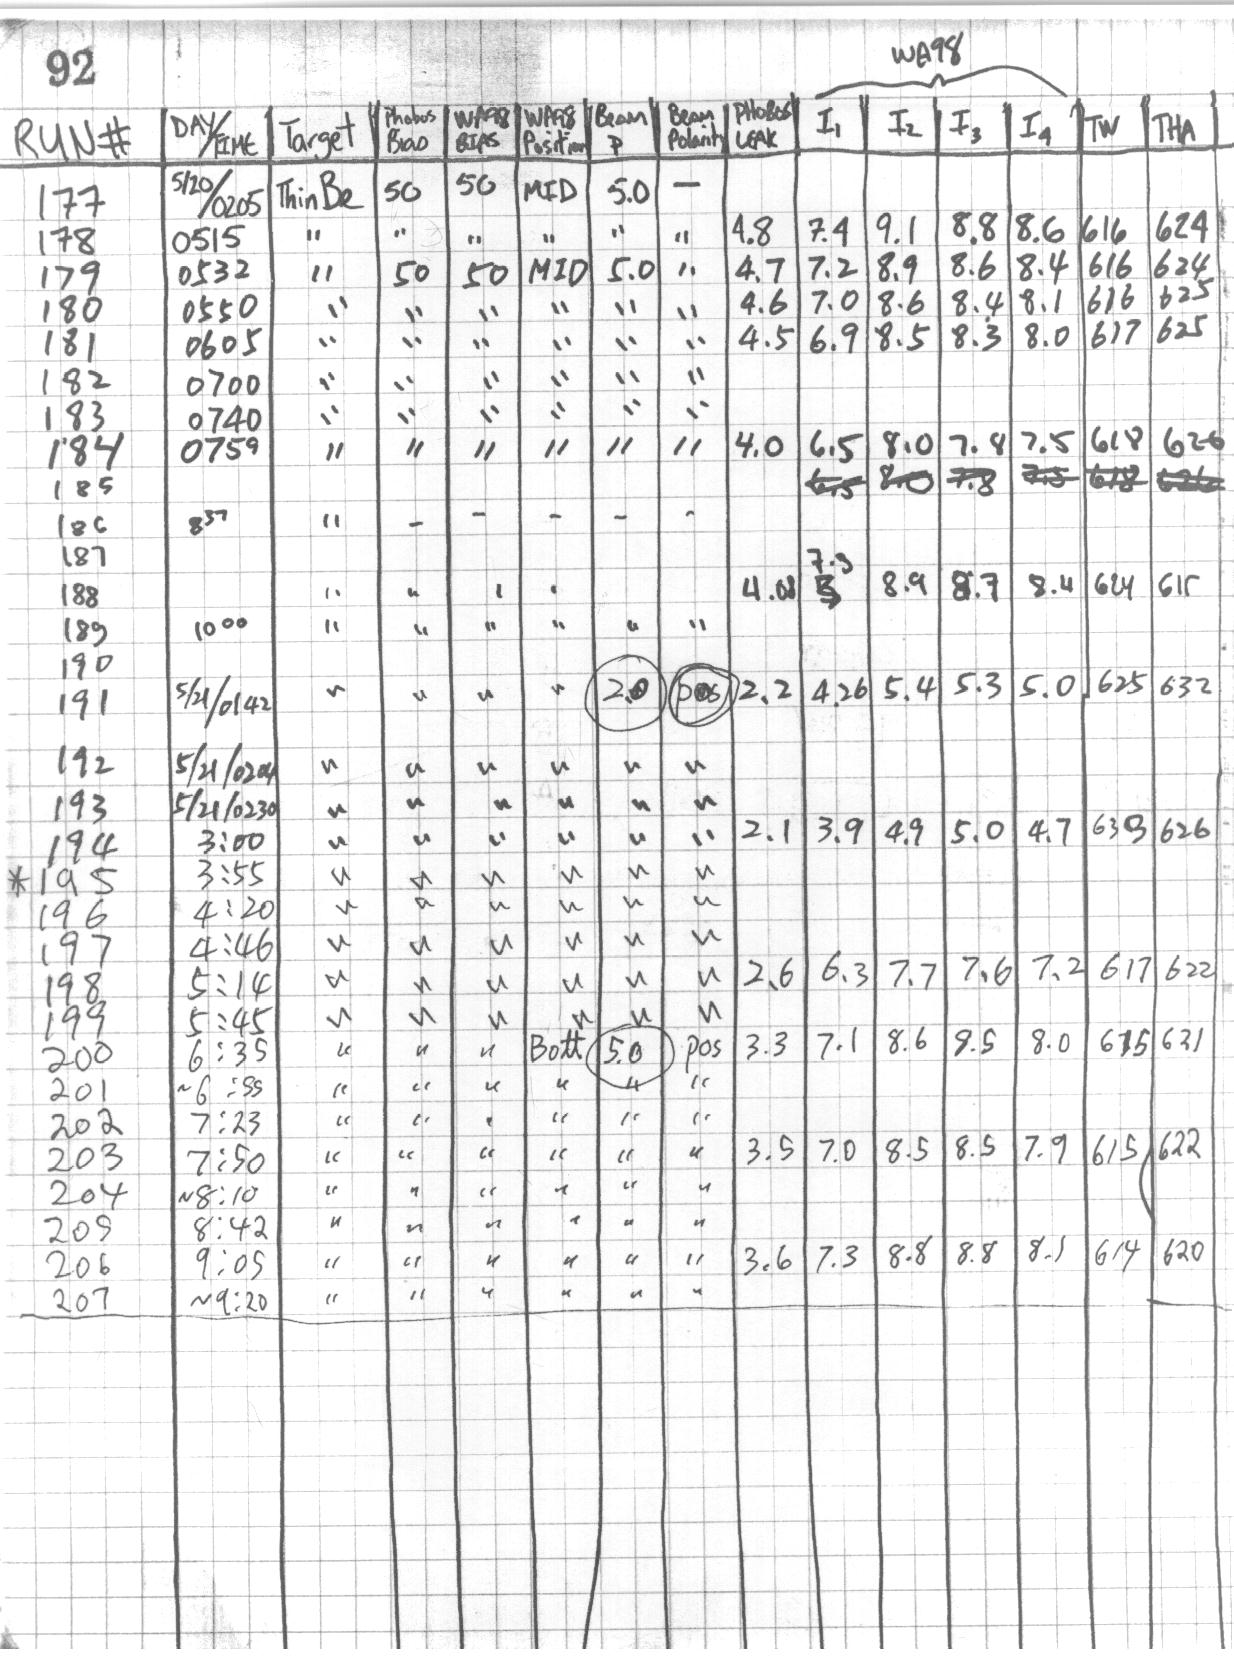 92
WA98
RUN# DAY/TIME Target Phobos Bias WA98 BIAS WA98 Position Beam P Beam Polarity PHOBOS LEAK I1 I2 I3 I4 TW THA
177 5/20/0205 Thin Be 50 50 MID 5.0 —
178 0515 " " " " " " 4.8 7.4 9.1 8.8 8.6 616 624
179 0532 " 50 50 MID 5.0 " 4.7 7.2 8.9 8.6 8.4 616 624
180 0550 " " " " " " 4.6 7.0 8.6 8.4 8.1 616 625
181 0605 " " " " " " 4.5 6.9 8.5 8.3 8.0 617 625
182 0700 " " " " " "
183 0740 " " " " " "
184 0759 " " " " " " 4.0 6.5 8.0 7.8 7.5 618 626
185 6.5 8.0 7.8 7.5 618 626
186 837 " - - - - -
187
188 " " " " 7.3 8.9 8.7 8.4
189 10 00 " " " " " "
190
191 5/21/0142 " " " " 2.0 pos 2.2 4.26 5.4 5.3 5.0 625 632
192 5/21/0204 " " " " " "
193 5/21/0230 " " " " " "
194 3:00 " " " " " " 2.1 3.9 4.9 5.0 4.7 626
*195 3:55 " " " " " "
196 4:20 " " " " " "
197 4:46 " " " " " "
198 5:14 " " " " " " 2.6 6.3 7.7 7.6 7.2 617 622
199 5:45 " " " " " "
200 6:35 " " " Bott 5.0 pos 3.3 7.1 8.6 8.5 8.0 615 631
201 ~6:55 " " " " " "
202 7:23 " " " " " "
203 7:50 " " " " " " 3.5 7.0 8.5 8.5 7.9 615 622
204 ~8:10 " " " " " "
205 8:42 " " " " " "
206 9:05 " " " " " " 3.6 7.3 8.8 8.8 8.1 614 620
207 ~9:20 " " " " " "